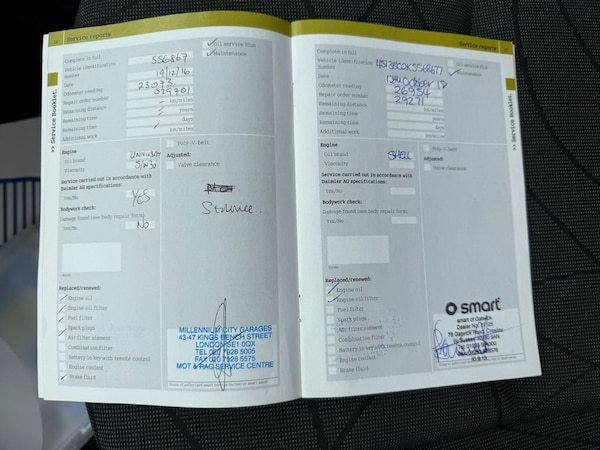 Service reports
Complete in full
Vehicle identification
number
556867
Date
19/12/16
Odometer reading
23073
Repair order number
029701
Remaining distance
km/miles
Remaining time
years
Remaining time
days
Additional work
km/miles
Oil service Plus
Maintenance
Engine
Oil brand
Viscosity
5W30
Service carried out in accordance with
Daimler AG specifications:
Yes/No
YES
Bodywork check:
Damage found (see body repair form)
Yes/No
No
Note
Poly-V-belt
Adjusted:
Valve clearance
Service.
Replaced/renewed:
Engine oil
Engine oil filter
Fuel filter
Spark plugs
Air filter element
Combination filter
Battery in key with remote control
Engine coolant
Brake fluid
MILLENNIUM CITY GARAGES
43-47 KINGS BENCH STREET
LONDON SE1 0QX
TEL 020 7928 5005
FAX 020 7928 5575
MOT & SERVICE CENTRE
>> Service Booklet.
Service reports
Complete in full
Vehicle identification
number
Date
12th October 18
Odometer reading
26954
Repair order number
29271
Remaining distance
km/miles
Remaining time
years
Remaining time
days
Additional work
km/miles
Oil service Plus
Maintenance
Engine
Oil brand
SHELL
Viscosity
Service carried out in accordance with
Daimler AG specifications:
Yes/No
Bodywork check:
Damage found (see body repair form)
Yes/No
Note
Poly-V-belt
Adjusted:
Valve clearance
Replaced/renewed:
Engine oil
Engine oil filter
Fuel filter
Spark plugs
Air filter element
Combination filter
Battery in key with remote control
Engine coolant
Brake fluid
smart
smart of Gatwick
>> Service Booklet.